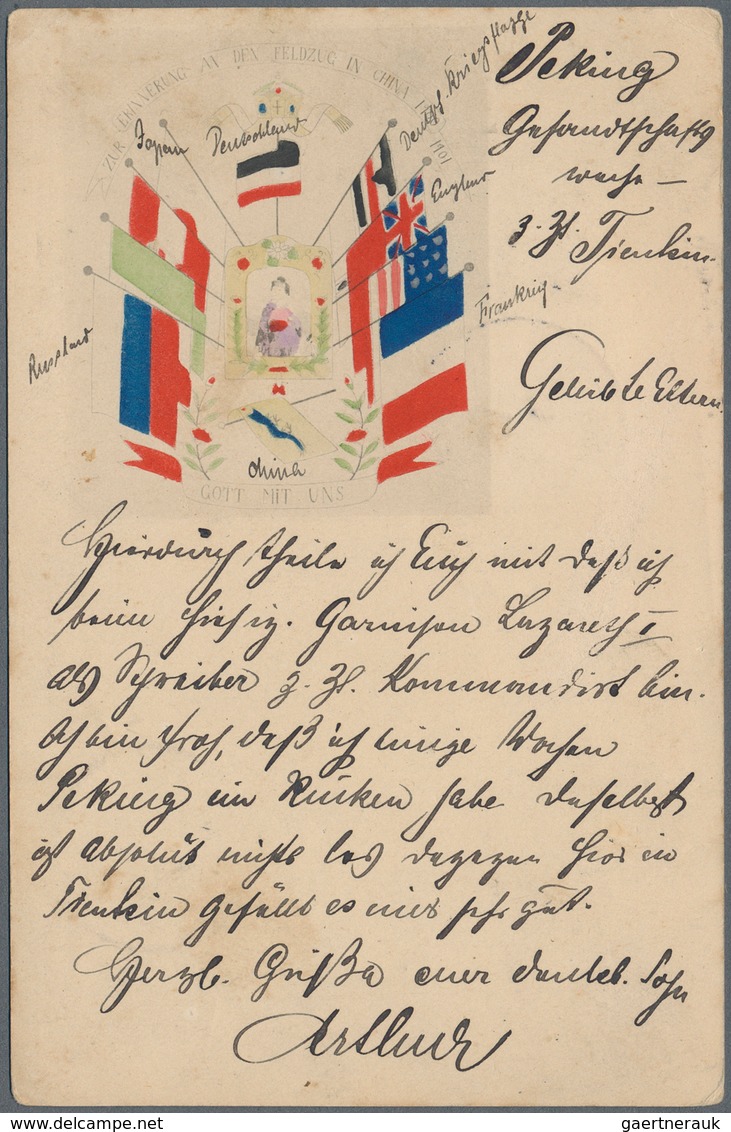 ZUR ERINNERUNG AN DEN FELDZUG IN CHINA 1901
Japan
Deutschland
Deutsch. Kriegsflagge
England
Russland
Frankreig
China
GOTT MIT UNS
Peking
Gesandtschafts
wache –
z. Zt. Tientsin.
Geliebte Eltern.
Hierdurch theile ich Euch mit daß ich
beim hiesig. Garnison Lazareth I
als Schreiber z. Zt. Kommandirt bin.
Ich bin froh, daß ich einige Wochen
Peking im Rücken habe daselbst
ist absolut nichts los dagegen hier in
Tientsin gefällt es mir sehr gut.
Herzl. Grüße euer dankb. Sohn
Arthur
gaertnerauk @ delcampe.net